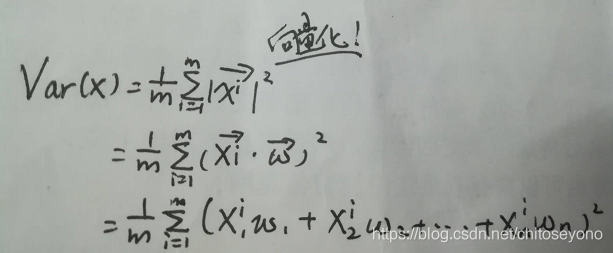 向量化!
Var(x) = 1/m Σ_{i=1}^{m} |\vec{x^i}|^2
= 1/m Σ_{i=1}^{m} (\vec{xi} · \vec{ω})^2
= 1/m Σ_{i=1}^{m} (X_1^i ω_1 + X_2^i ω_2 + ... + X_n^i ω_n)^2
https://blog.csdn.net/chitoseyono